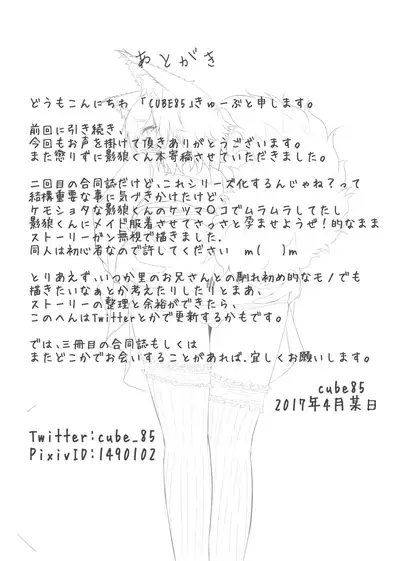 あとがき
どうもこんにちわ 「CUBE85」きゅーぶと申します。
前回に引き続き、
今回もお声を掛けて頂きありがとうございます。
また懲りずに影狼くん本寄稿させていただきました。
二回目の合同誌だけど、これシリーズ化するんじゃね？って
結構重要な事に気づきかけたけど、
同人は初心者なので許してください m( )m
とりあえず、いつか里のお兄さんとの馴れ初め的なモノでも
描きたいなぁとか考えたりしたりとまあ、
ストーリーの整理と余裕ができたら、
このへんはTwitterとかで更新するかもです。
では、三冊目の合同誌もしくは
またどこかでお会いすることがあれば、宜しくお願いします。
cube85
2017年4月某日
Twitter:cube_85
PixivID:1490102